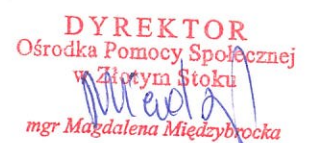 DYREKTOR
Ośrodka Pomocy Społecznej
w Złotym Stoku
mgr Magdalena Międzybrocka